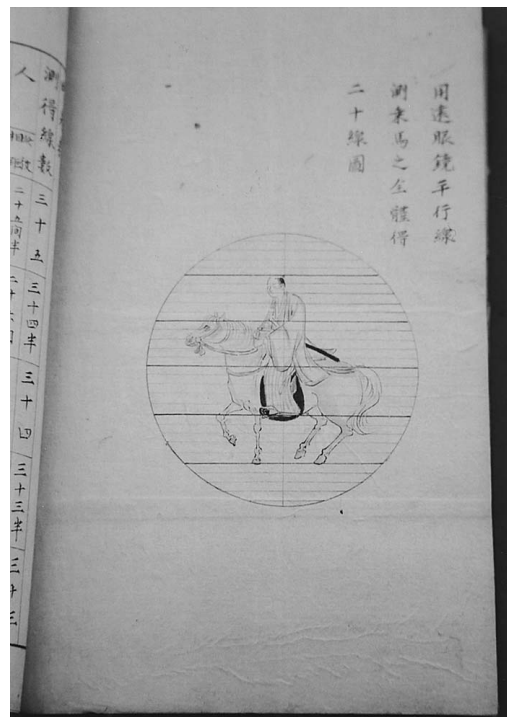 用遠眼鏡平行線
測乗馬之全體得
二十線圖
測得線數
三十五
三十四半
三十四
三十三半
三十三
人
二十五間半